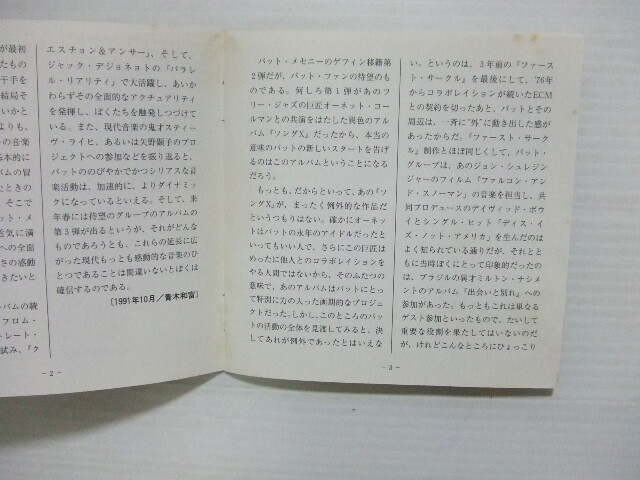 が最初
たもの
干手を
結局そ
いかと
よりも、
の音楽
本的に
バムの冒
たときの
そこで
ット・メ
活気に満
への全面
さの感動
きたいと
バムの続
フロム・
トレート・
試み、『ク
エスチョン＆アンサー』、そして、
ジャック・デジョネットの『パラレ
ル・リアリティ』で大活躍し、あいか
わらずその全面的なアクチュアリティ
を発揮し、ぼくたちを触発しつづけて
いる。また、現代音楽の鬼才スティー
ヴ・ライヒ、あるいは矢野顕子のプロ
ジェクトへの参加などを振り返ると、
パットののびやかでかつシリアスな音
楽活動は、加速的に、よりダイナミッ
クになっているといえる。そして、来
年春には待望のグループのアルバムの
第3弾が出るというが、それがどんな
ものであろうとも、これらの延長に広
がった現代もっとも感動的な音楽のひ
とつであることは間違いないとぼくは
確信するのである。
〔1991年10月／青木和富〕
－2－
パット・メセニーのゲフィン移籍第
2弾だが、パット・ファンの待望のも
のである。何しろ第1弾があのフ
リー・ジャズの巨匠オーネット・コー
ルマンとの共演をはたした異色のアル
バム『ソングX』だったから、本当の
意味のパットの新しいスタートを告げ
るのはこのアルバムということになる
だろう。
もっとも、だからといって、あの『ソ
ングX』が、まったく例外的な作品だ
というつもりはない。確かにオーネッ
トはパットの永年のアイドルだったと
いってもいい人で、さらにこの巨匠は
めったに他人とのコラボレイションを
やる人間ではないから、そのふたつの
意味で、あのアルバムはパットにとっ
て特別に力の入った画期的なプロジェ
クトだった。しかし、このところのパッ
トの活動の全体を見渡してみると、決
してあれが例外であったとはいえな
い。というのは、3年前の『ファース
ト・サークル』を最後にして、'76年
からコラボレイションが続いたECM
との契約を切ったあと、パットとその
周辺は、一斉に"外"に動き出した感が
あったからだ。『ファースト・サーク
ル』制作とほぼ同じくして、パット・
グループは、あのジョン・シュレジン
ジャーのフィルム『ファルコン・アン
ド・スノーマン』の音楽を担当し、共
同プロデュースのデイヴィッド・ボウ
イとシングル・ヒット「ディス・イ
ズ・ノット・アメリカ」を生んだのは
よく知られている通りだが、それとと
もに当時ぼくにとって印象的だったの
は、ブラジルの異才ミルトン・ナシメ
ントのアルバム『出会いと別れ』への
参加があった。もっともこれは単なる
ゲスト参加といったもので、たいして
重要な役割を果たしてはいないのだ
が、けれどこんなところにひょっこり
－3－